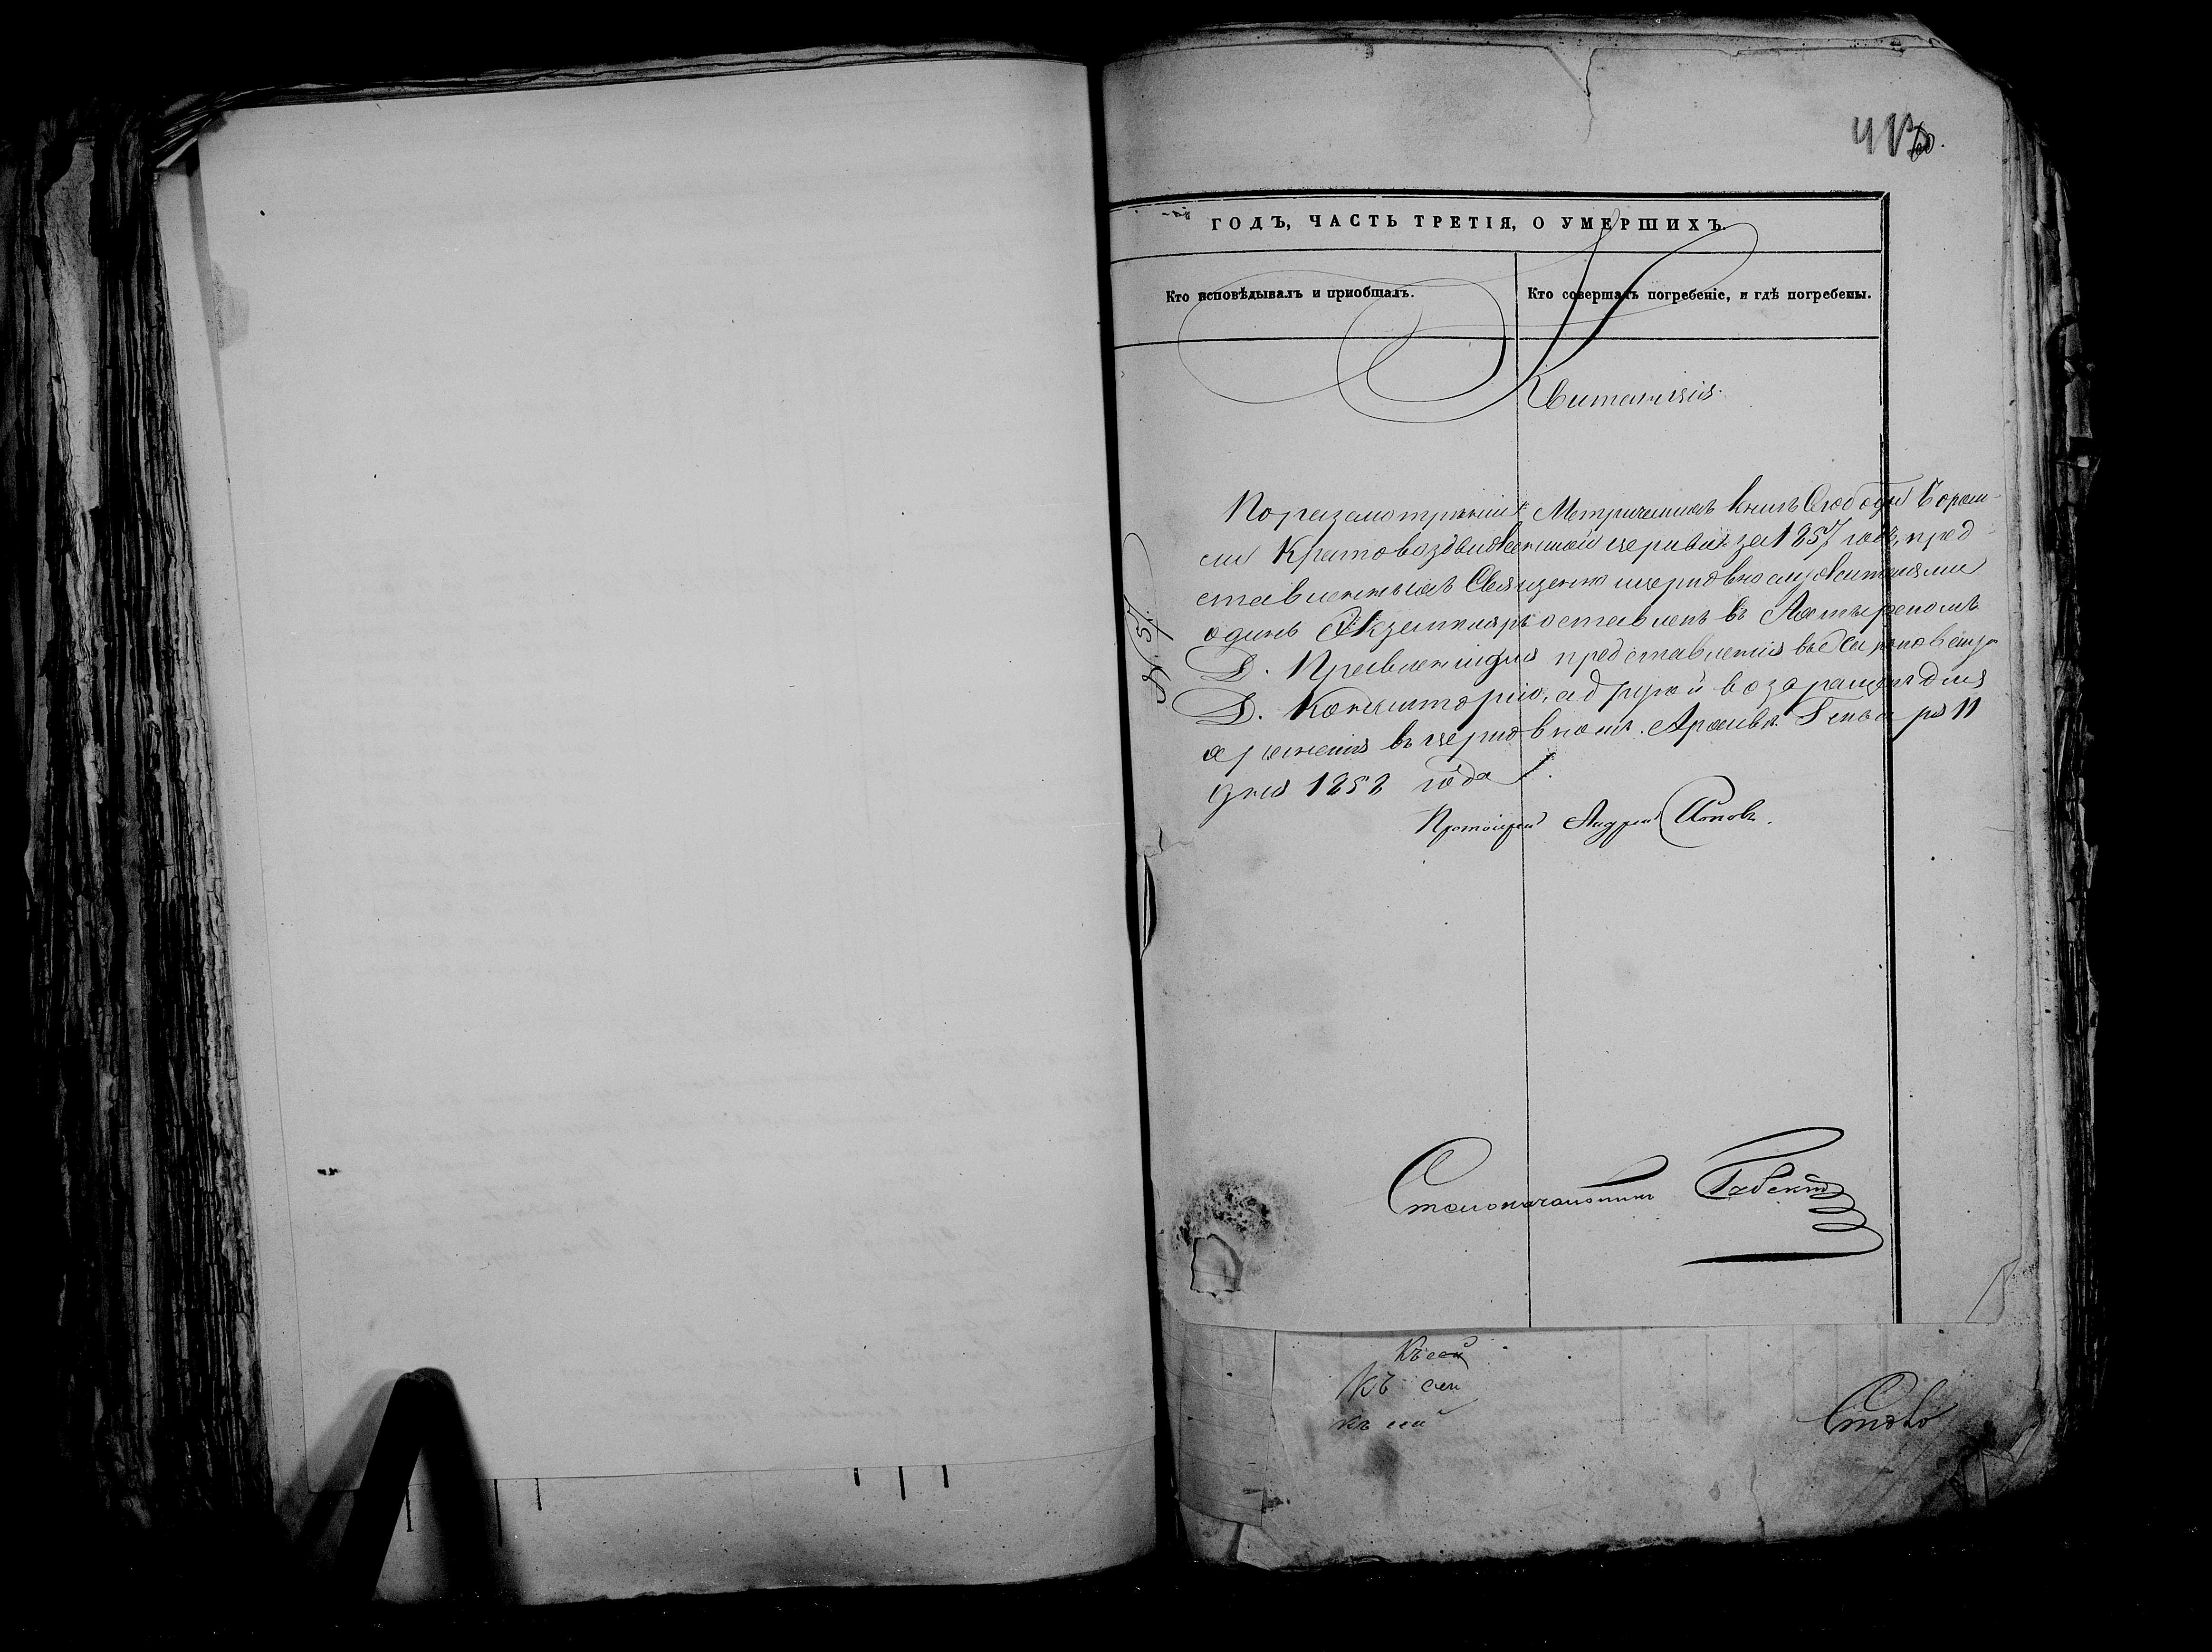 ГОДЪ, ЧАСТЬ ТРЕТІЯ, О УМЕРШИХЪ.
Кто исповѣдывалъ и пріобщалъ.
Кто совершалъ погребеніе, и гдѣ погребены.
Квитанція.
По разсмотрѣніи Метрическихъ книгъ Слободы Боромли
Крестовоздвиженской церкви за 1857 годъ, пред-
ставленныхъ Священно церковнослужителями
одинъ Экземпляръ оставленъ въ Ахтырскомъ
Д. Правленіи для представленія въ Харьковскую
Д. Консисторію, а другой возвращенъ для
храненія въ церковномъ Архивѣ. Генваря 11
дня 1858 года.
Протоіерей Андрей Поповъ.
№ 51.
Столоначальникъ
Къ сей
Къ сей
къ сей